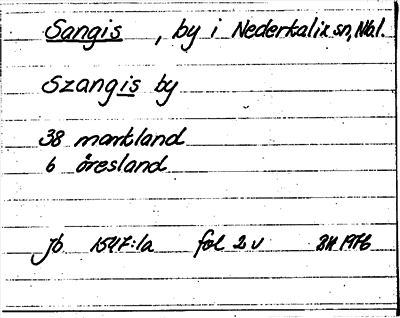 Sangis , by i Nederkalix sn, Nbl.
Szangis by
38 markland
6 öresland
Jb 1547:1a fol 2 v BH 1976